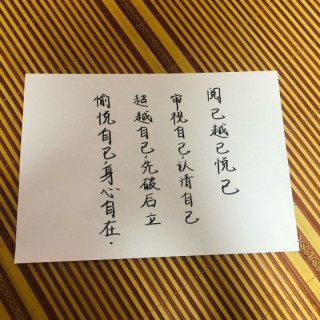 阅己越己悦己
审视自己,认清自己
超越自己,先破后立
愉悦自己,身心自在.